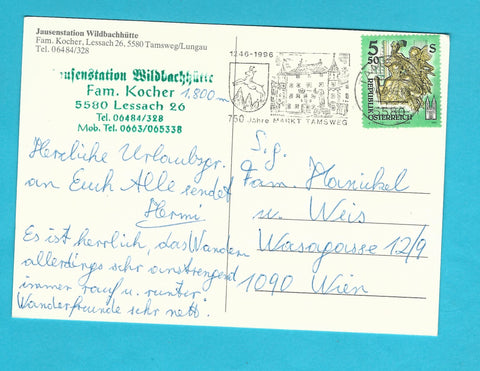 Jausenstation Wildbachhütte
Fam. Kocher, Lessach 26, 5580 Tamsweg/Lungau
Tel. 06484/328
ausenstation Wildbachhütte
Fam. Kocher 1.800 m
5580 Lessach 26
Tel. 06484/328
Mob. Tel. 0663/065338
Herzliche Urlaubsgr.
an Euch Alle sendet
Hermi
Es ist herrlich, das Wandern
allerdings sehr anstrengend
immer rauf u. runter.
Wanderfreunde sehr nett.
1246-1996
750 Jahre MARKT TAMSWEG
5580
5 50 S
REPUBLIK
ÖSTERREICH
S.g.
Fam. Hanickel
u. Weis
Wasagasse 12/9
1090 Wien